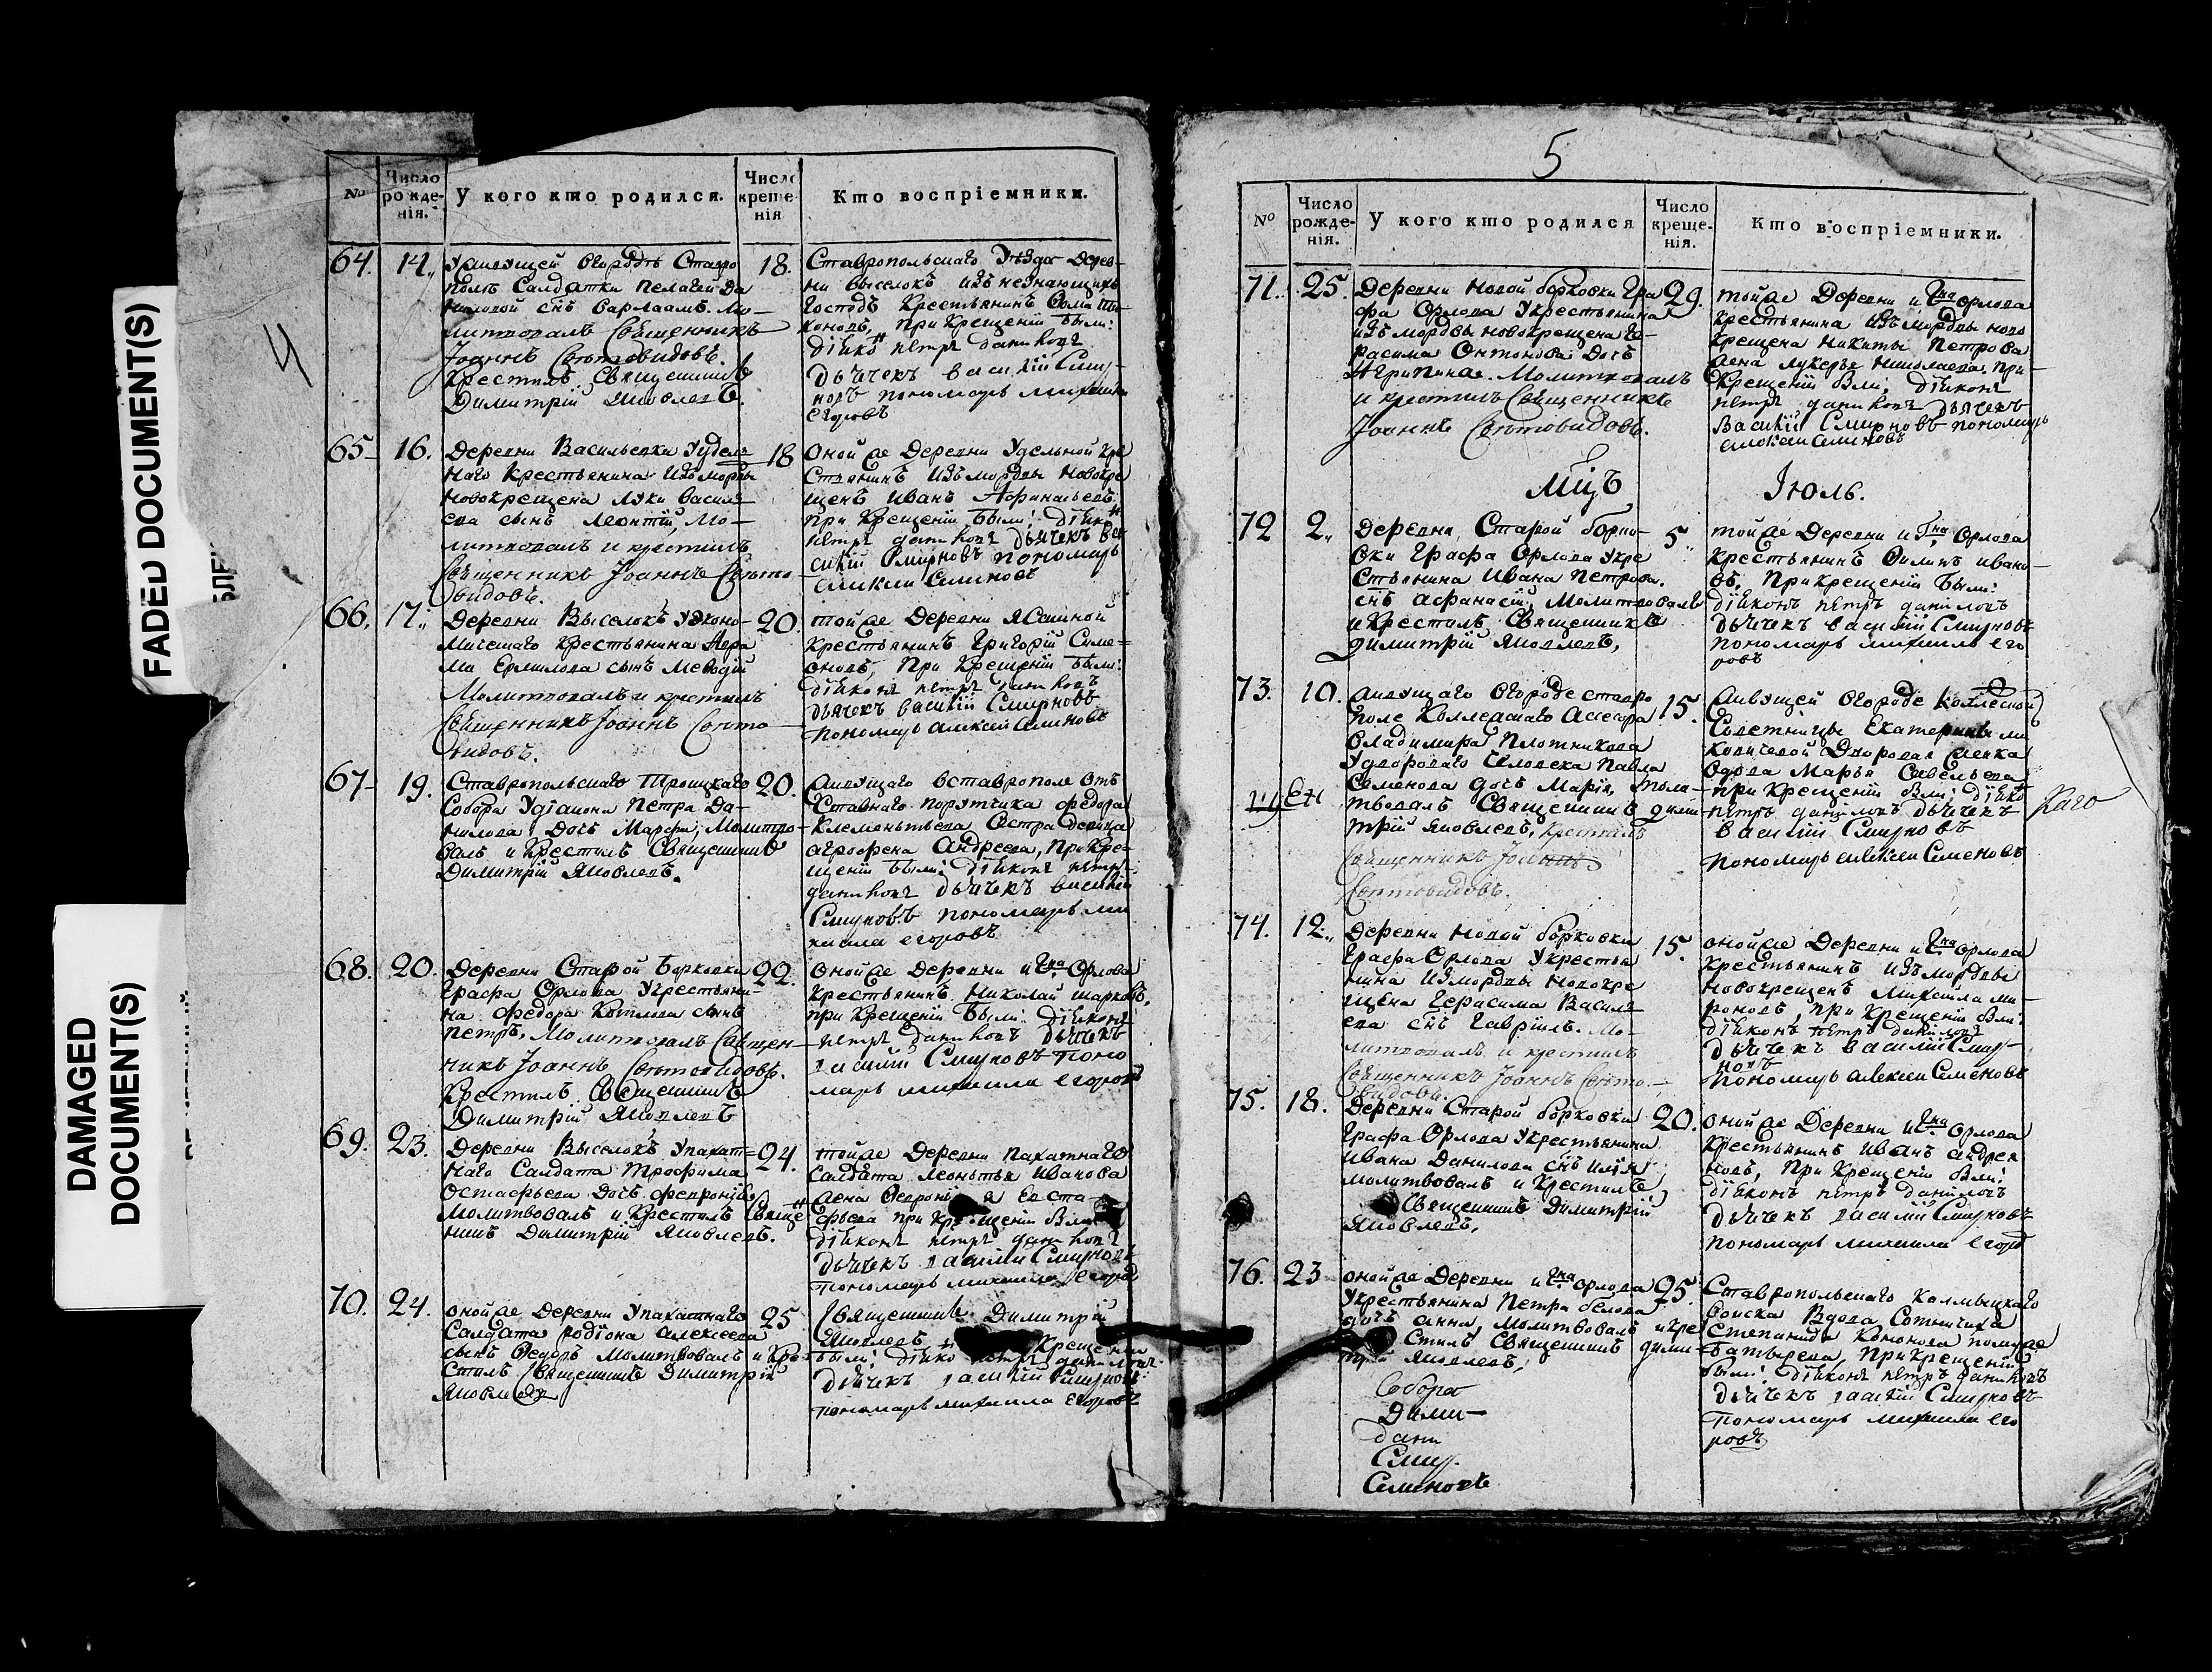 FADED DOCUMENT(S)
DAMAGED
DOCUMENT(S)
4
№
Число
рожде-
нія.
У кого кто родился.
Число
креще
нія
Кто воспріемники.
64.
14.
Живущей вгородѣ Ставро
полѣ Салдатки Пелагеи Да
ниловой снъ Варлаамъ. Мо-
литвовалъ Священникъ
Іоаннъ Святовидовъ.
Крестилъ Священникъ
Димитрій Яковлевъ.
18.
Ставропольскаго Уѣзда дерев-
ни выселокъ
Господъ Крестьянинъ
при Крещеніи были:
діяконъ петръ даниловъ
дьячекъ василій Смир-
новъ пономарь михаила
егоровъ
65
16.
Деревни Васильевки Уудель
наго Крестьянина изъ мордвы
новокрещена Луки Василь
ева сынъ Леонтій, Мо-
литвовалъ и крестилъ
Священникъ Іоаннъ Свято
видовъ.
18
Оной же Деревни Удельной кре
стьянинъ изъ мордвы новокре
щенъ Иванъ Афанасьевъ
при Крещеніи были: діяконъ
петръ даниловъ дьячекъ Ва
силій Смирновъ пономарь
алексеи Семеновъ
66.
17.
Деревни Выселокъ Уэконо-
мическаго крестьянина
Ермилова сынъ Меводій
Молитвовалъ и крестилъ
Священникъ Іоаннъ Свято
видовъ.
20.
тойже Деревни Ясашной
Крестьянинъ Григорій Симе-
оновъ, При Крещеніи были:
діяконъ петръ даниловъ
дьячекъ василій Смирновъ
пономарь алексеи Семеновъ
67
19.
Ставропольскаго Троицкаго
Собора Удіакона Петра Да-
нилова Дочь Марфа, Молитво-
валъ и Крестилъ Священникъ
Димитрій Яковлевъ.
20.
Живущаго вставрополе отъ
ставнаго порутчика федора
Клементьева Сестра девица
агрофена Андреева, При Кре-
щеніи были: діяконъ петръ
даниловъ дьячекъ василій
Смирновъ пономарь ми
хаила егоровъ
68.
20.
Деревни Старой Борковки
Графа Орлова Укрестьяни-
на федора Котлова сынъ
петръ. Молитвовалъ Священ-
никъ Іоаннъ Святовидовъ.
Крестилъ Священникъ
Димитрій Яковлевъ
22.
Оной же Деревни и Гна Орлова
Крестьянинъ Николай шарковъ,
при Крещеніи были: діяконъ
петръ даниловъ дьячекъ
василій Смирновъ поно
марь михаила егоровъ
69.
23.
Деревни Выселокъ Упахат-
наго Салдата Трофима
Остафьева Дочь февронія
Молитвовалъ и Крестилъ Свяще
никъ Димитрій Яковлевъ.
24.
тойже Деревни пахатнаго
Салдата Леонтья Иванова
жена Февронія Евста
фьева при Крещеніи были
діяконъ петръ даниловъ
дьячекъ василій Смирновъ
пономарь михаила егоровъ
70.
24.
оной же Деревни Упахатнаго
Салдата Родіона Алексеева
сынъ Федоръ Молитвовалъ и Кре-
стилъ Священникъ Димитрій
Яковлевъ
25
Священникъ Димитрій
Яковлевъ Крещеніи
были: діяконъ петръ даниловъ
дьячекъ василій Смирновъ
пономарь михаила егоровъ
5
№
Число
рожде-
нія.
У кого кто родился
Число
креще-
нія.
Кто воспріемники.
71.
25.
Деревни Новой борковки Гра
фа Орлова Укрестьянина
изъ мордвы новокрещена Ге-
расима Онтонова Дочь
Агрипина. Молитвовалъ
и крестилъ Священникъ
Іоаннъ Святовидовъ.
29.
тойже Деревни и Гна Орлова
крестьянина изъ мордвы ново
крещена Никиты Петрова
жена лукерья николаева, при-
крещеніи были, діяконъ
петръ даниловъ дьячекъ
Василій Смирновъ пономарь
алексеи Семеновъ
Мцъ
Іюль.
72
2.
Деревни Старой борко-
вки Графа Орлова Укре
стьянина Ивана Петрова.
снъ Афанасій, Молитвовалъ
и Крестилъ Священникъ
Димитрій Яковлевъ,
5
тойже Деревни и Гна Орлова
крестьянинъ Филипъ ивано-
въ, При крещеніи были:
діяконъ петръ даниловъ
дьячекъ василій Смирновъ
пономарь михаила его
ровъ
73.
10.
Живущаго вгороде ставро
поле Коллежскаго Ассесора
Владимира Плотникова
Удвороваго человека Павла
Семенова дочь Марія, моли-
твовалъ Священникъ дими-
трій Яковлевъ, крестилъ
Священникъ Іоаннъ
Святовидовъ.
15.
Живущей вгороде Коллеской
Советницы Екатерины
Дворовая
вдова Марья Савельева
при Крещеніи были: діяко
петръ даниловъ дьячекъ
василій Смирновъ
пономарь алексеи Семеновъ
74.
12.
Деревни Новой борковки
Графа Орлова Укрестья
нина Изъ мордвы новокре
щена Герасима Василь
ева снъ Гавріилъ. Мо-
литвовалъ и крестилъ
Священникъ Іоаннъ Свято-
видовъ.
15.
оной же Деревни и Гна Орлова
Крестьянинъ изъ мордвы
новокрещенъ Михаила ми-
роновъ, при Крещеніи были:
діяконъ петръ даниловъ
дьячекъ василій Смир-
новъ
пономарь алексеи Семеновъ
75.
18.
Деревни Старой борковки
Графа Орлова Укрестьянина
Ивана Данилова снъ Илія
молитвовалъ и Крестилъ
Священникъ Димитрій
Яковлевъ,
20.
оной же Деревни и Гна Орлова
Крестьянинъ Иванъ андрея
новъ, При Крещеніи были:
діяконъ петръ даниловъ
дьячекъ василій Смирновъ
пономарь михаила егоровъ
76.
23
оной же Деревни и Гна Орлова
Укрестьянина Петра белова
дочь анна, Молитвовалъ и кре
стилъ Священникъ дими-
трій Яковлевъ,
25.
Ставропольскаго Калмыцкаго
Воиска Вдова Сотничиха
Степанида Кононова
При крещеніи
были: діяконъ петръ даниловъ
дьячекъ василій Смирновъ
пономарь михаила его
ровъ
Собора
Дими-
дани
Смир.
Семеновъ